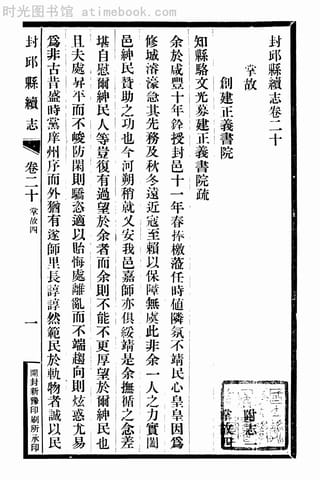 时光图书馆 - AZtimes.cn
封邱縣續志卷二十
掌故
創建正義書院
知縣駱文光募建正義書院疏
余於咸豐十年銓授封邑十一年春捧檄蒞任時値隣氛不靖民心皇皇因爲
修城溶濠急其先務及秋冬遠近寇至賴以保障無虞此非余一人之力實闔
邑紳民贊助之功也今河朔稍就乂安我邑嘉師亦俱綏靖是余撫循之念差
堪自慰爾紳民人等豈復有過望於余者而余則不能不更厚望於爾紳民也
且夫處昇平而不峻防閑則驕恣適以貽悔處離亂而不端趨向則炫惑尤易
爲非古昔盛時黨庠州序而外猶有遂師里長諄諄然範民於軌物者誠以民
封邱縣續志
卷二十
掌故四
一
開封新豫印刷所承印